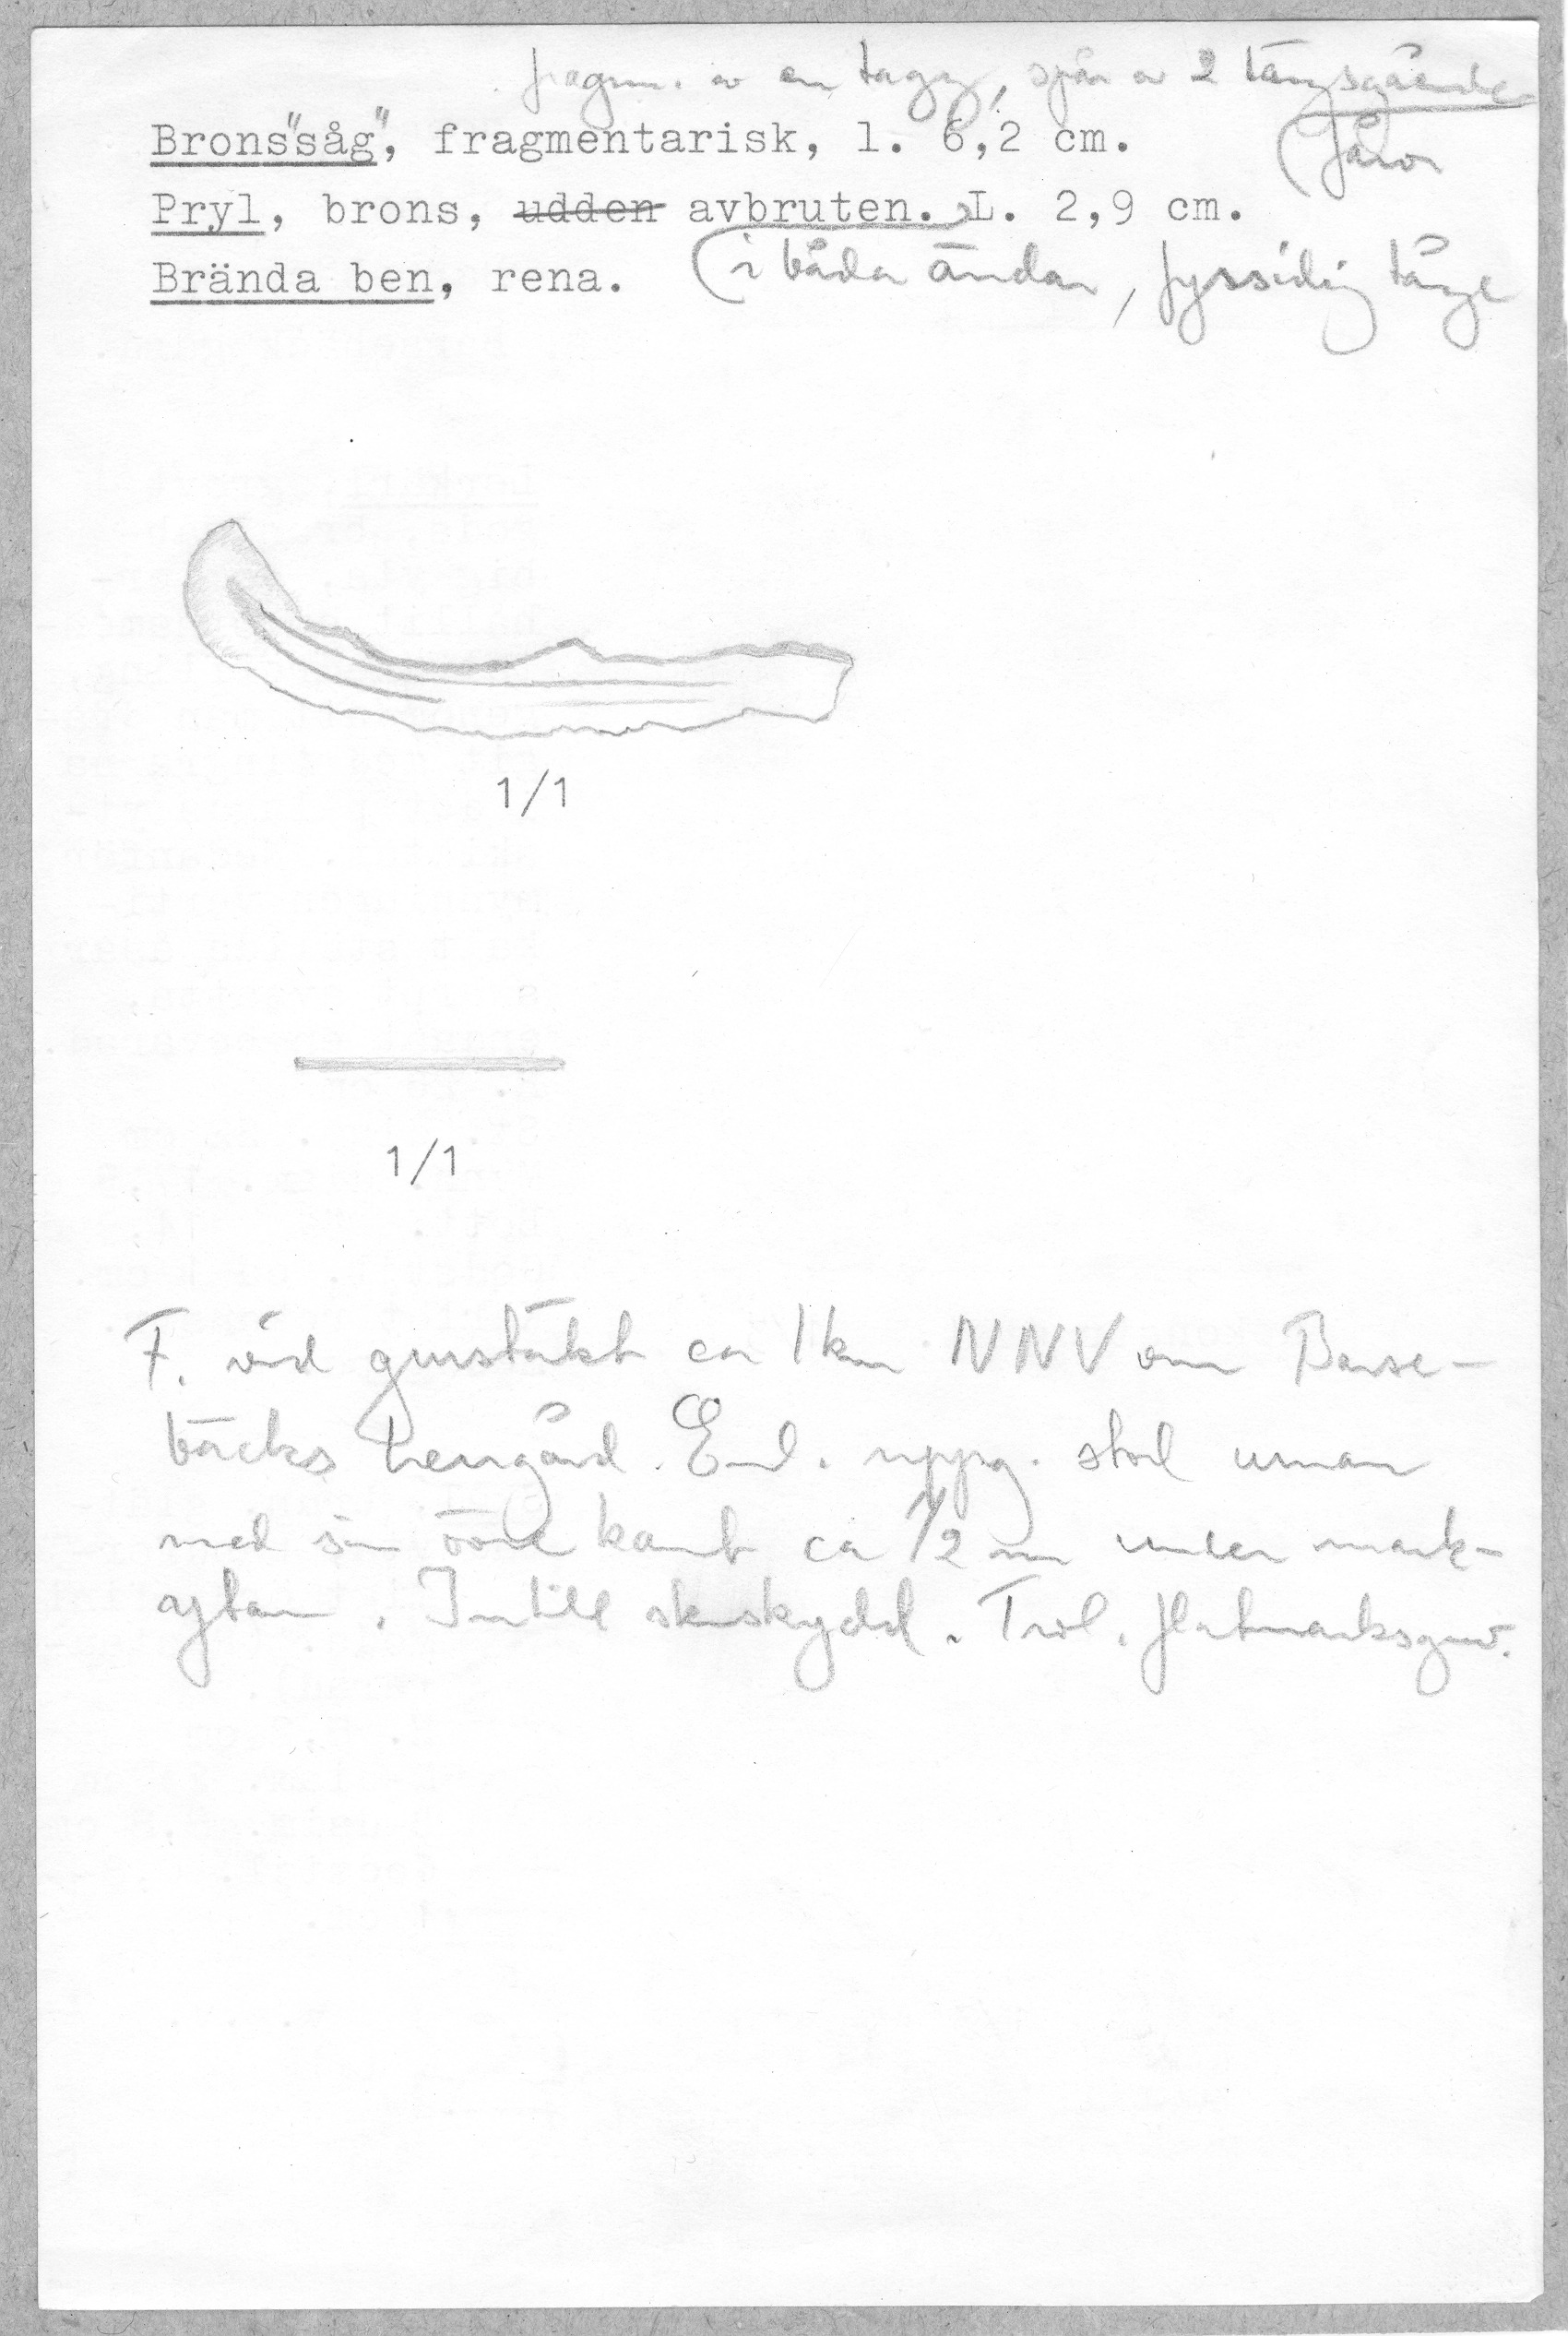 fragm. av en tagg, spår av 2 längsgående
Brons"såg", fragmentarisk, l. 6,2 cm.
fåror
Pryl, brons, udden avbruten. L. 2,9 cm.
i båda ändar, fyrsidig tånge
Brända ben, rena.
1/1
1/1
F. vid grustäkt ca 1 km NNV om Barse-
bäcks herrgård. Enl. uppg. stod urnan
med sin övre kant ca 1/2 m under mark-
ytan. Intill stenskydd. Trol. flatmarksgrav.